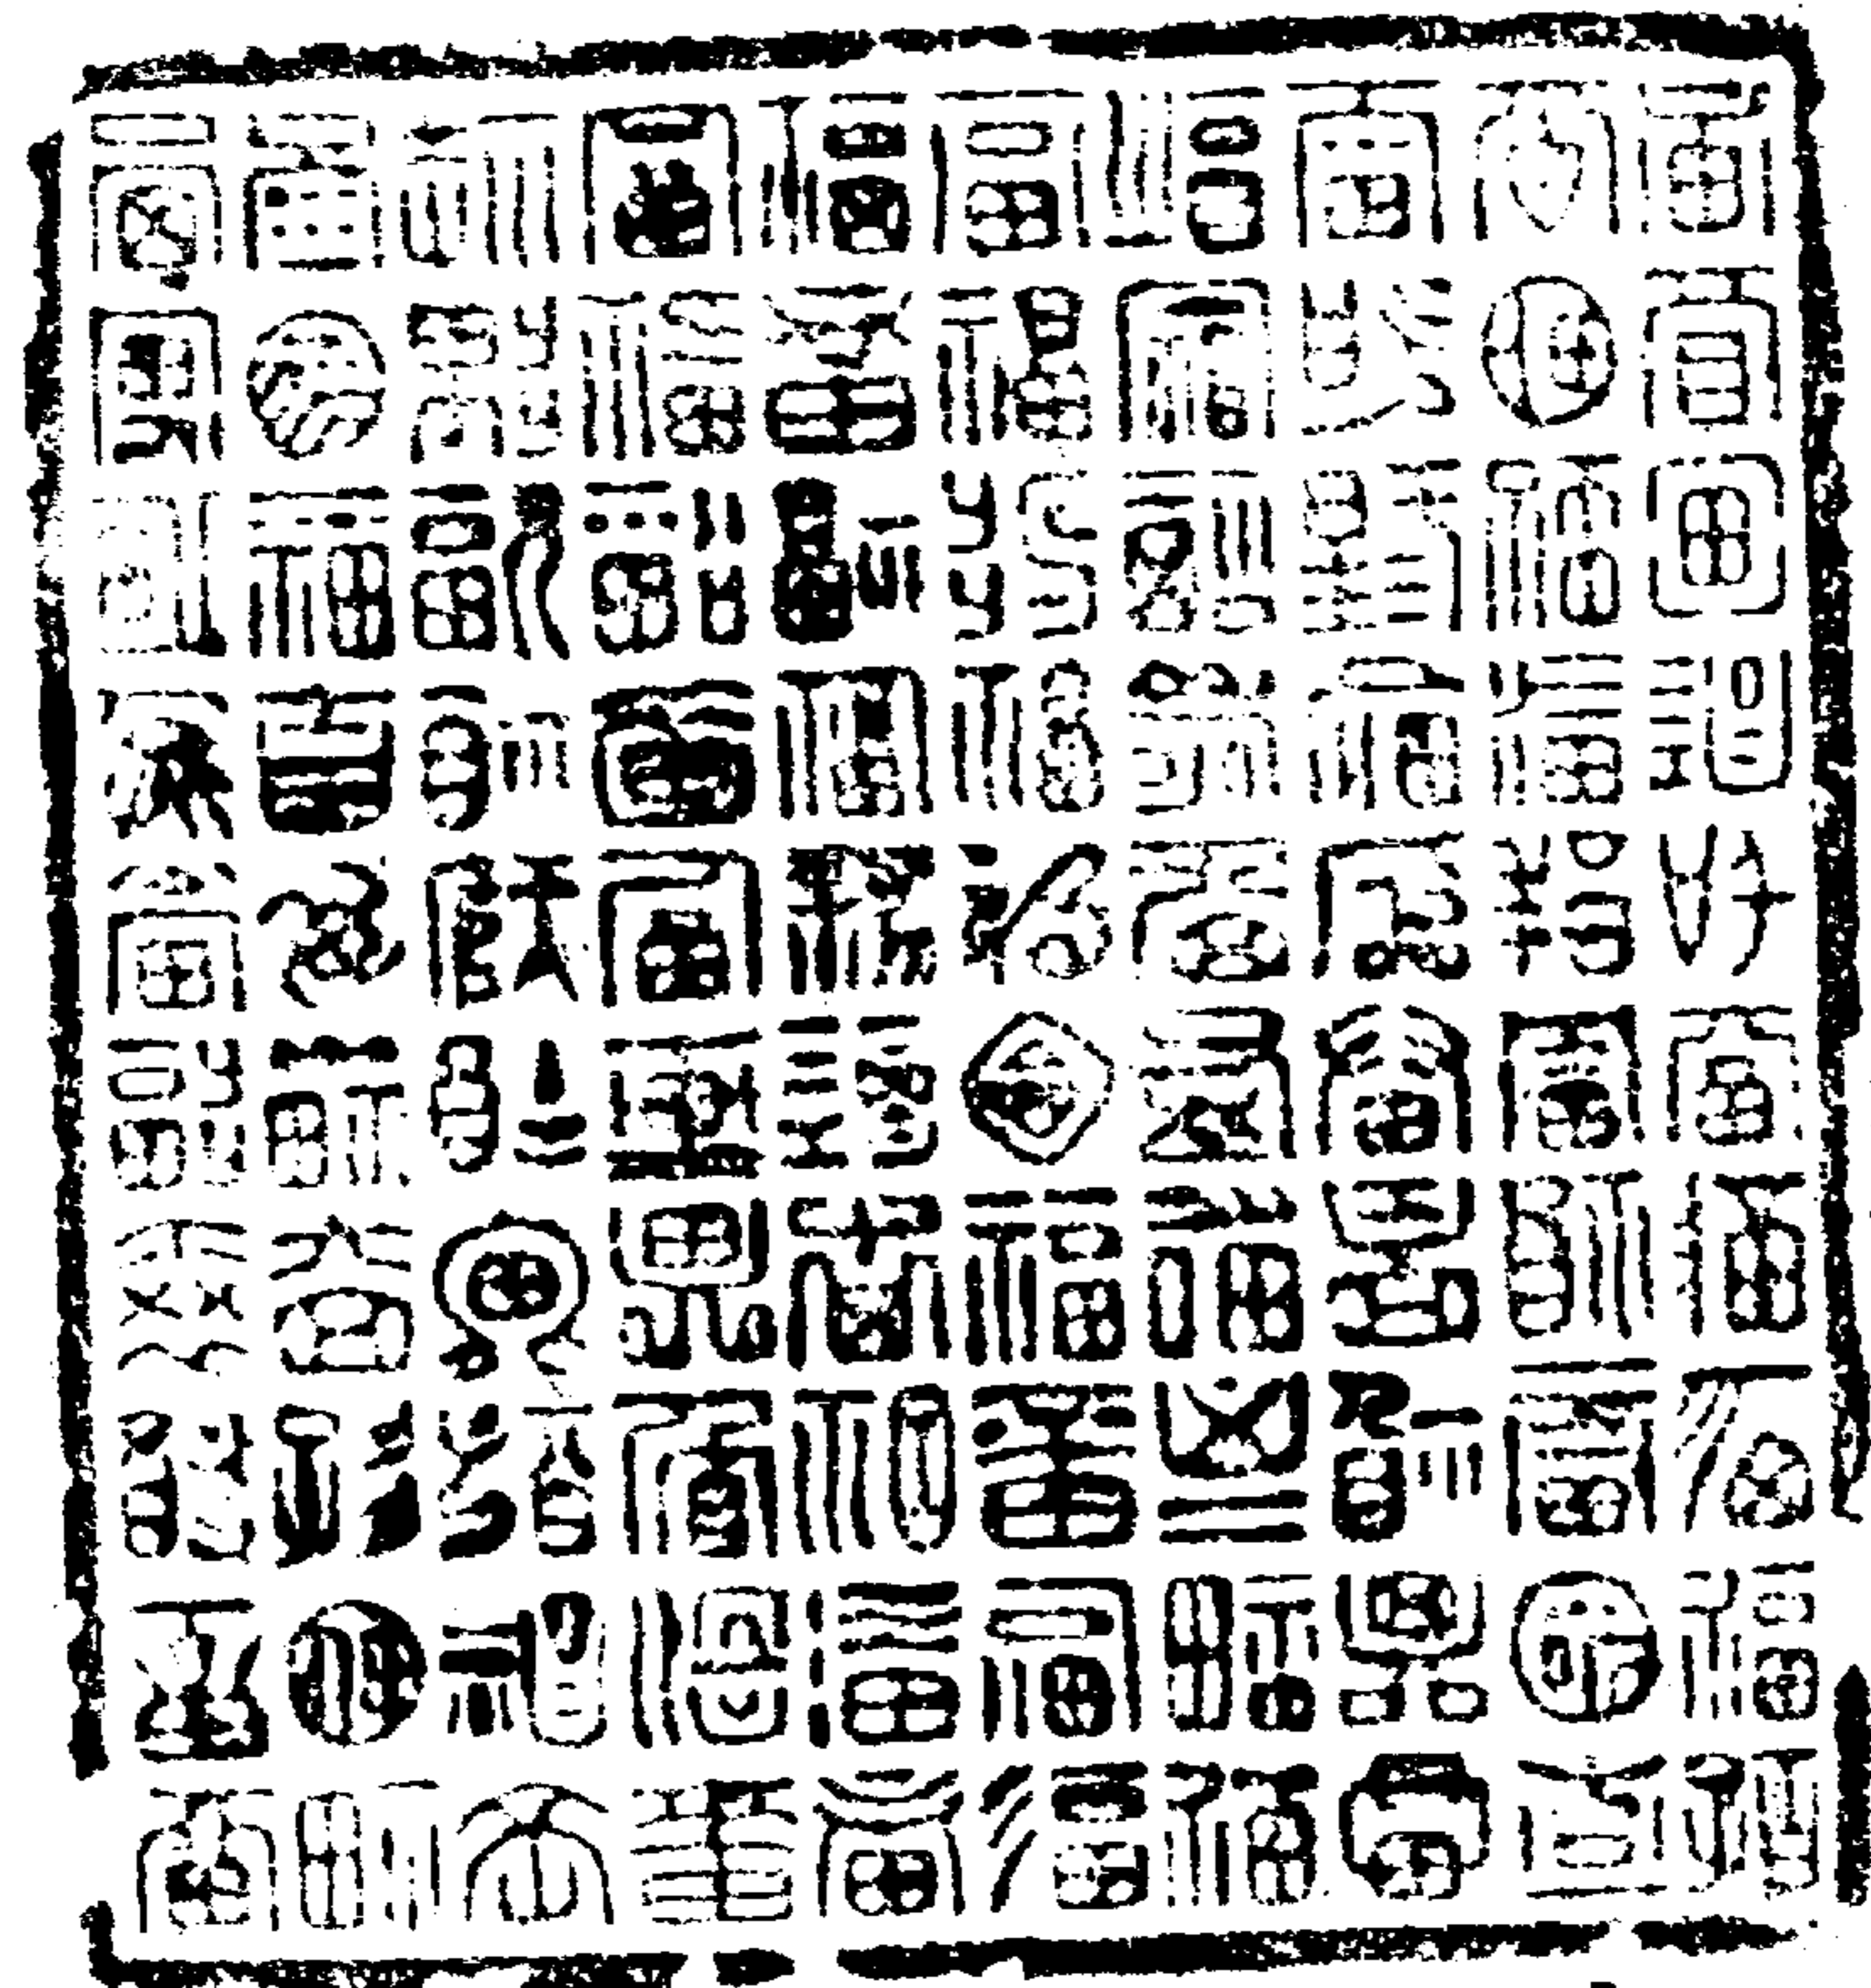 福福福福福福福福福福
福福福福福福福福福福
福福福福福福福福福福
福福福福福福福福福福
福福福福福福福福福福
福福福福福福福福福福
福福福福福福福福福福
福福福福福福福福福福
福福福福福福福福福福
福福福福福福福福福福